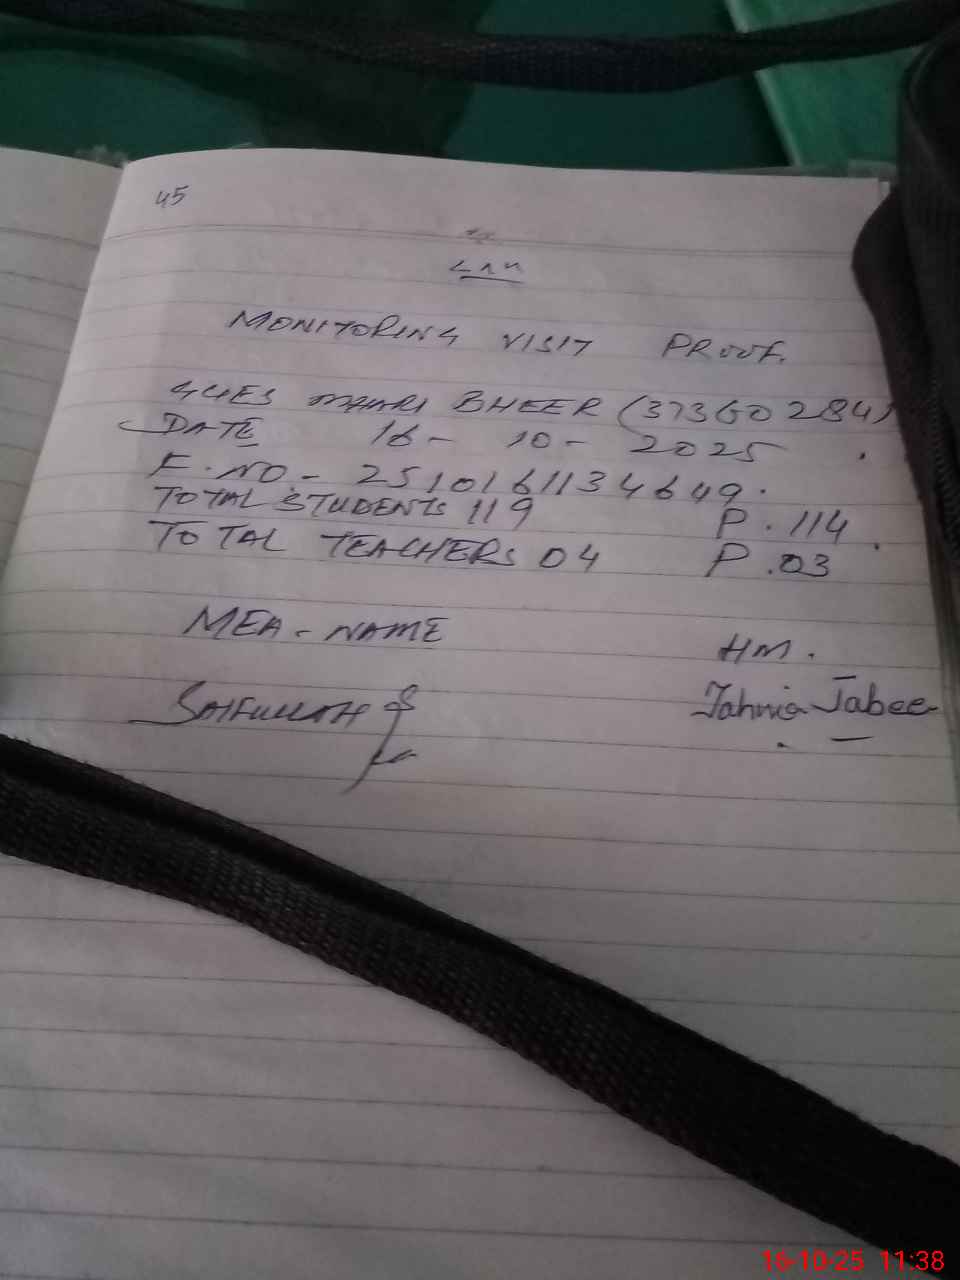 45
MONITORING VISIT PROOF.
GGES MHARI BHEER (37360284)
DATE 16 - 10 - 2025
F. NO. - 2510161134649.
TOTAL STUDENTS 119 P. 114
TOTAL TEACHERS 04 P. 03
MEA - NAME HM.
SAIFULLAH Tahnia Jabee
16-10-25 11:38